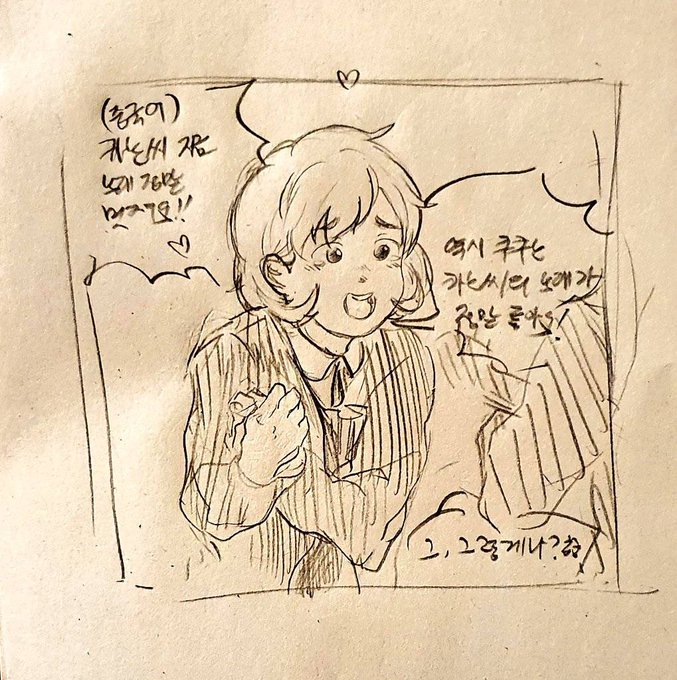 (중국어)
카논씨 지금
노래 정말
멋져요!!
역시 쿠쿠는
카논씨의 노래가
정말 좋아요!
그, 그렇게나?